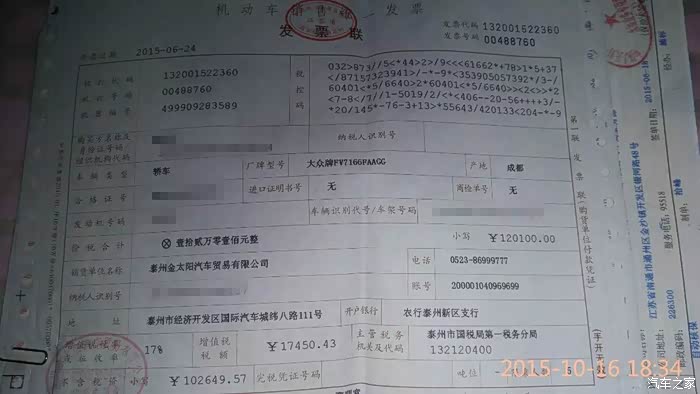 机动车销售统一发票
发票联
发票代码 132001522360
发票号码 00488760
开票日期 2015-06-24
机打代码 132001522360
机打号码 00488760
机器编号 499909283589
税控码
032>873//5<*44>2>/9<<<61662*+78>1*5+37
</87157323941>/-*-9*<353905057392*/3-/
60401<*5/6640>2*60401<*5/6640>><2<>>*2
<7-8</7//1-5019/2/<*<406--20-56++++3/-
*20/145*-76-3+13>*55643/420133<204-*-9
购买方名称及身份证号码/组织机构代码
纳税人识别号
车辆类型 轿车 厂牌型号 大众牌FV7166FAAGG 产地 成都
合格证号 进口证明书号 无 商检单号 无
发动机号码 车辆识别代号/车架号码
价税合计 ⊗壹拾贰万零壹佰元整 小写 ￥120100.00
销货单位名称 泰州金太阳汽车贸易有限公司 电话 0523-86999777
纳税人识别号 账号 200001040969699
地址 泰州市经济开发区国际汽车城纬八路111号 开户银行 农行泰州新区支行
增值税税率或征收率 17% 增值税税额 ￥17450.43 主管税务机关及代码 泰州市国税局第一税务分局 132120400
不含税价 小写 ￥102649.57 完税凭证号码 吨位
第一联 发票联
(购货单位付款凭证)
(手开无效)
签单日期: 2015-06-18
服务电话: 95518
江苏省南通市通州区金沙镇开发区银河路48号
226300
2015-10-16 18:34
汽车之家